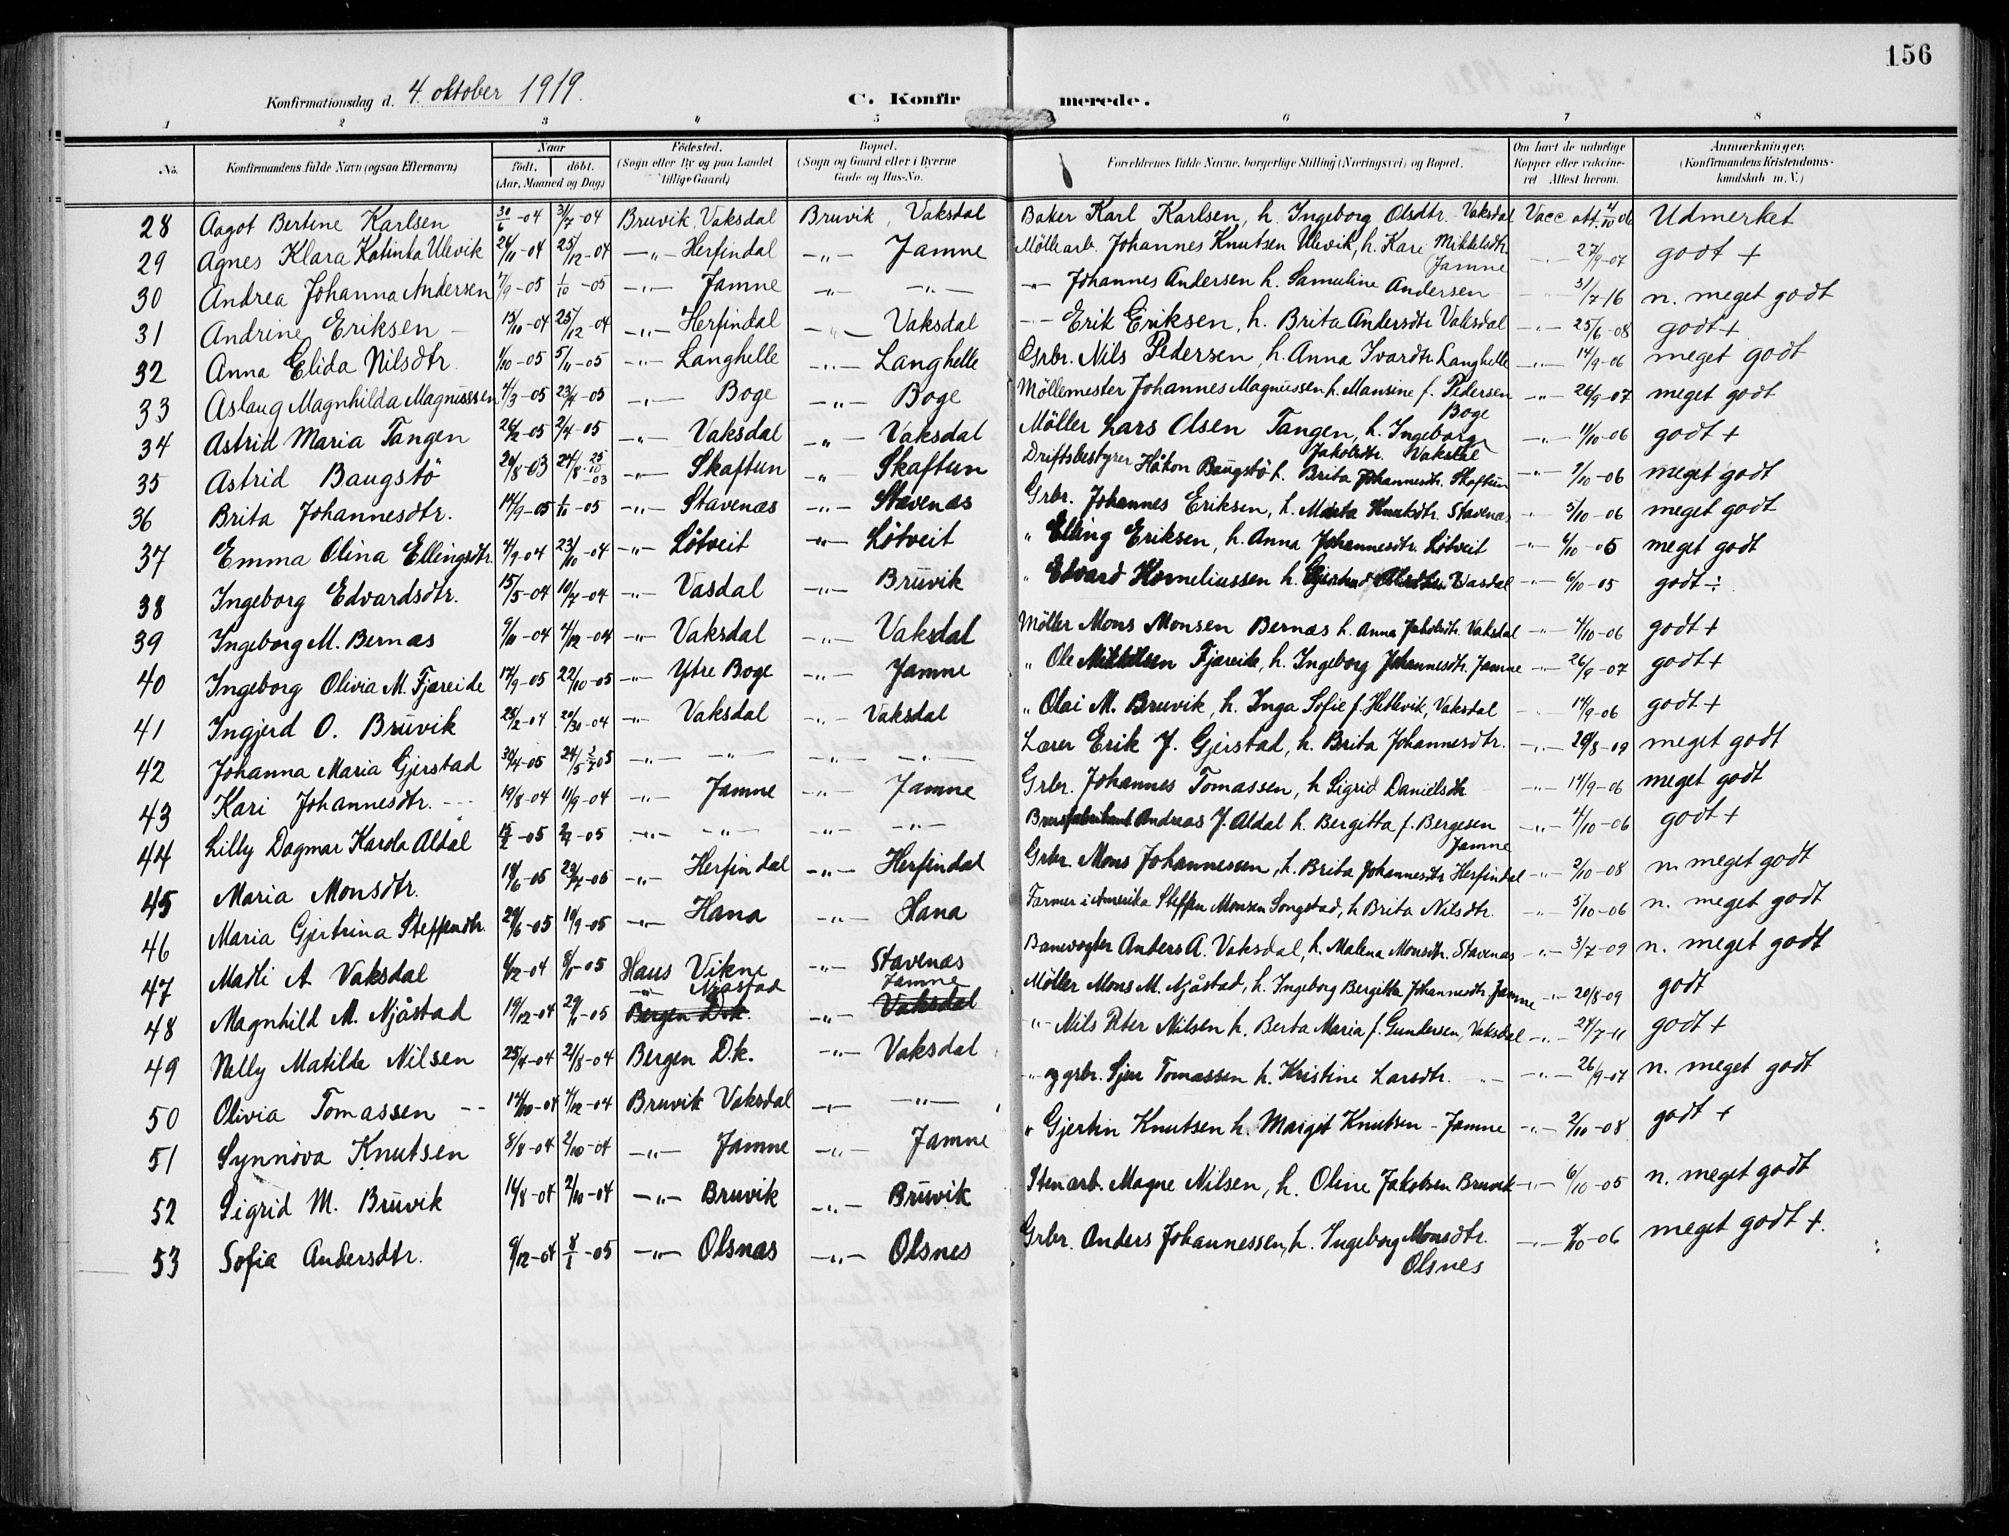 156
Konfirmationsdag d. 4 oktober 1919.
C. Konfirmerede.
1 2 3 " 5 6 7 8
No. Konfirmandens fulde Navn (ogsaa Efternavn) Naar født. døbt. (Aar, Maaned og Dag) Fødested. (Sogn eller By og paa Landet tillige Gaard) Bopæl. (Sogn og Gaard eller i Byerne Gade og Hus-No. Forældrenes fulde Navne, borgerlige Stilling (Næringsvei) og Bopæl. Om havt de naturlige Kopper eller vaccineret Attest herom. Anmærkninger. (Konfirmandens Kristendomskundskab m. V.)
28 Aagot Bertine Karlsen 30/6-04 31/7-04 Bruvik Vaksdal Bruvik, Vaksdal Baker Karl Karlsen, h. Ingeborg Olsdtr. Vaksdal Vacc att. 4/10 06 Udmerket
29 Agnes Klara Katinka Ulevik 24/11-04 25/12-04 -"- Herfindal -"- Jamne Möllearb. Johannes Knutsen Ulevik, h. Kari Mikkelsdtr. Jamne -"- 27/9-07 godt +
30 Andrea Johanna Andersen 7/9-05 1/10-05 -"- Jamne -"- -"- -"- Johannes Andersen h. Samuline Andersen -"- 31/7-16 n. meget godt
31 Andrine Eriksen 15/10-04 25/12-04 -"- Herfindal -"- Vaksdal -"- Erik Eriksen, h. Brita Andersdtr Vaksdal -"- 25/6-08 godt +
32 Anna Elida Nilsdtr. 1/10-05 5/11-05 -"- Langhelle -"- Langhelle Grbr. Nils Pedersen, h. Anna Ivardtr. Langhelle -"- 14/9-06 meget godt
33 Aslaug Magnhilda Magnussen 4/3-05 23/4-05 -"- Boge -"- Boge Möllemester Johannes Magnussen h. Mansine f. Pedersen Boge -"- 26/9-07 meget godt
34 Astrid Maria Tangen 26/2-05 2/4-05 -"- Vaksdal -"- Vaksdal Möller Lars Olsen Tangen, h. Ingeborg Jakobsdtr. Vaksdal -"- 11/10-06 godt +
35 Astrid Baugstö 24/8-03 24/8- 25/10-03 -"- Skaftun " Skaftun Driftsbestyrer Håkon Baugstö h. Brita Johannesdtr. Skaftun -"- 9/10-06 meget godt
36 Brita Johannesdtr. 14/9-05 1/10-05 -"- Stavenæs -"- Stavenæs Grbr. Johannes Eriksen, h. Marta Knutsdtr. Stavenæs " 5/10-06 meget godt
37 Emma Olina Ellingsdtr. 4/9-04 23/10-04 -"- Lötveit -"- Lötveit " Elling Eriksen, h. Anna Johannesdtr. Lötveit -"- 6/10-05 meget godt
38 Ingeborg Edvardsdtr. 15/5-04 10/7-04 -"- Vasdal -"- Bruvik " Edvard Korneliussen h. Gjertrud Olsdtr. Vasdal -"- 6/10-05 godt ÷
39 Ingeborg M. Bernæs 9/11-04 4/12-04 -"- Vaksdal -"- Vaksdal Möller Mons Monsen Bernæs h. Anna Jakobsdtr. Vaksdal -"- 4/10-06 godt +
40 Ingeborg Olivia M. Fjæreide 17/9-05 22/10-05 -"- Ytre Boge -"- Jamne " Ole Mikkelsen Fjæreide, h. Ingeborg Johannesdtr. Jamne -"- 26/9-07 godt +
41 Ingjerd O. Bruvik 25/2-04 -04 -"- Vaksdal -"- Vaksdal " Olai M. Bruvik, h. Inga Sofie f. Hetlevik, Vaksdal 14/9-06 godt +
42 Johanna Maria Gjerstad 30/4-05 24/5 2/7 05 -"- -"- -"- -"- Lærer Erik J. Gjerstad, h. Brita Johannesdtr. -"- 20/8-09 meget godt
43 Kari Johannesdtr. 19/8-04 11/9-04 -"- Jamne -"- Jamne Grbr. Johannes Tomassen, h Sigrid Danielsdtr -"- 14/9-06 meget godt
44 Lilly Dagmar Karola Aldal -05 -05 -"- -"- -"- -"- Brusfabrikant Andreas J. Aldal h. Bergitta f. Bergesen Jamne -"- 4/10-06 godt +
45 Maria Monsdtr. 18/6-05 23/7-05 -"- Herfindal -"- Herfindal Grbr. Mons Johannessen, h. Brita Johannesdtr Herfindal -"- 2/10-08 n. meget godt
46 Maria Gjertrina Steffendtr. 29/6-05 10/9-05 -"- Hana -"- Hana Farmer i Amerika Steffen Monsen Songstad, h Brita Nilsdtr. " 5/10-06 n. meget godt
47 Madli A Vaksdal 6/12-04 8/1-05 Haus Vikne -"- Stavenæs Banevogter Anders A. Vaksdal, h. Malena Monsdtr. Stavenæs -"- 3/7-09 n. meget godt
48 Magnhild M. Njåstad 19/12-04 29/1-05 -"- Njåstad Bergen Dk. -"- Jamne Vaksdal Möller Mons M. Njåstad, h. Ingeborg Bergitta Johannesdtr. Jamne -"- 20/8-09 godt
49 Nelly Matilde Nilsen 25/4-04 21/8-04 Bergen D.k. -"- Vaksdal "- Nils Peter Nilsen h. Berta Maria f. Gundersen, Vaksdal -"- 24/7-11 godt +
50 Olivia Tomassen 14/10-04 4/12-04 Bruvik Vaksdal -"- -"- -"- og grbr. Sjur Tomassen h. Kristine Larsdtr. -"- -"- 26/9-07 n. meget godt
51 Synnöva Knutsen 8/8-04 2/10-04 -"- Jamne -"- Jamne " Gjertin Knutsen h. Margit Knutsen - Jamne -"- 2/10-08 godt +
52 Sigrid M. Bruvik 14/8-04 2/10-04 -"- Bruvik -"- Bruvik Stenarb. Magne Nilsen, h. Oline Jakobsen Bruvik -"- 6/10-05 n. meget godt
53 Sofia Andersdtr. 9/12-04 8/1-05 -"- Olsnæs -"- Olsnes Grbr. Anders Johannessen, h. Ingeborg Monsdtr. Olsnes -"- -06 meget godt +.